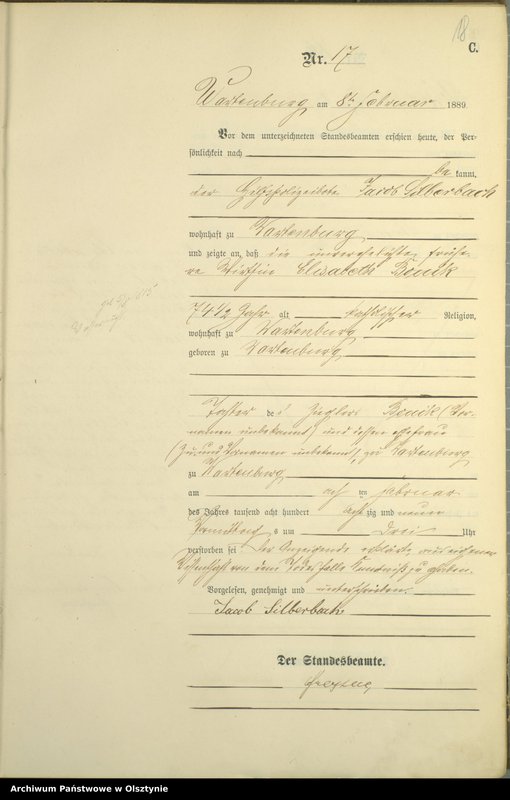 18
C.
Nr. 17
Wartenburg am 8ten Februar 1889
Vor dem unterzeichneten Standesbeamten erschien heute, der Per-
sönlichkeit nach
be kannt,
der Jacob Silberbach
wohnhaft zu Wartenburg
und zeigte an, daß die unverehelichte frühe-
re Wirthin Elisabeth Bönik
74 1/2 Jahr alt katholischer Religion,
wohnhaft zu Wartenburg
geboren zu Wartenburg
Tochter des Ziegler Bönik (Vor-
namen unbekannt) und dessen Ehefrau
(Zu- und Vornamen unbekannt) zu Wartenburg
zu Wartenburg
am ach ten Februar
des Jahres tausend acht hundert acht zig und neun
Vormittags um drei Uhr
verstorben sei. Der Anzeigende erklärte aus eigener
Wissenschaft von dem Todesfalle Kenntniß zu haben.
Vorgelesen, genehmigt und unterschrieben.
Jacob Silberbach
Der Standesbeamte.
Archiwum Państwowe w Olsztynie